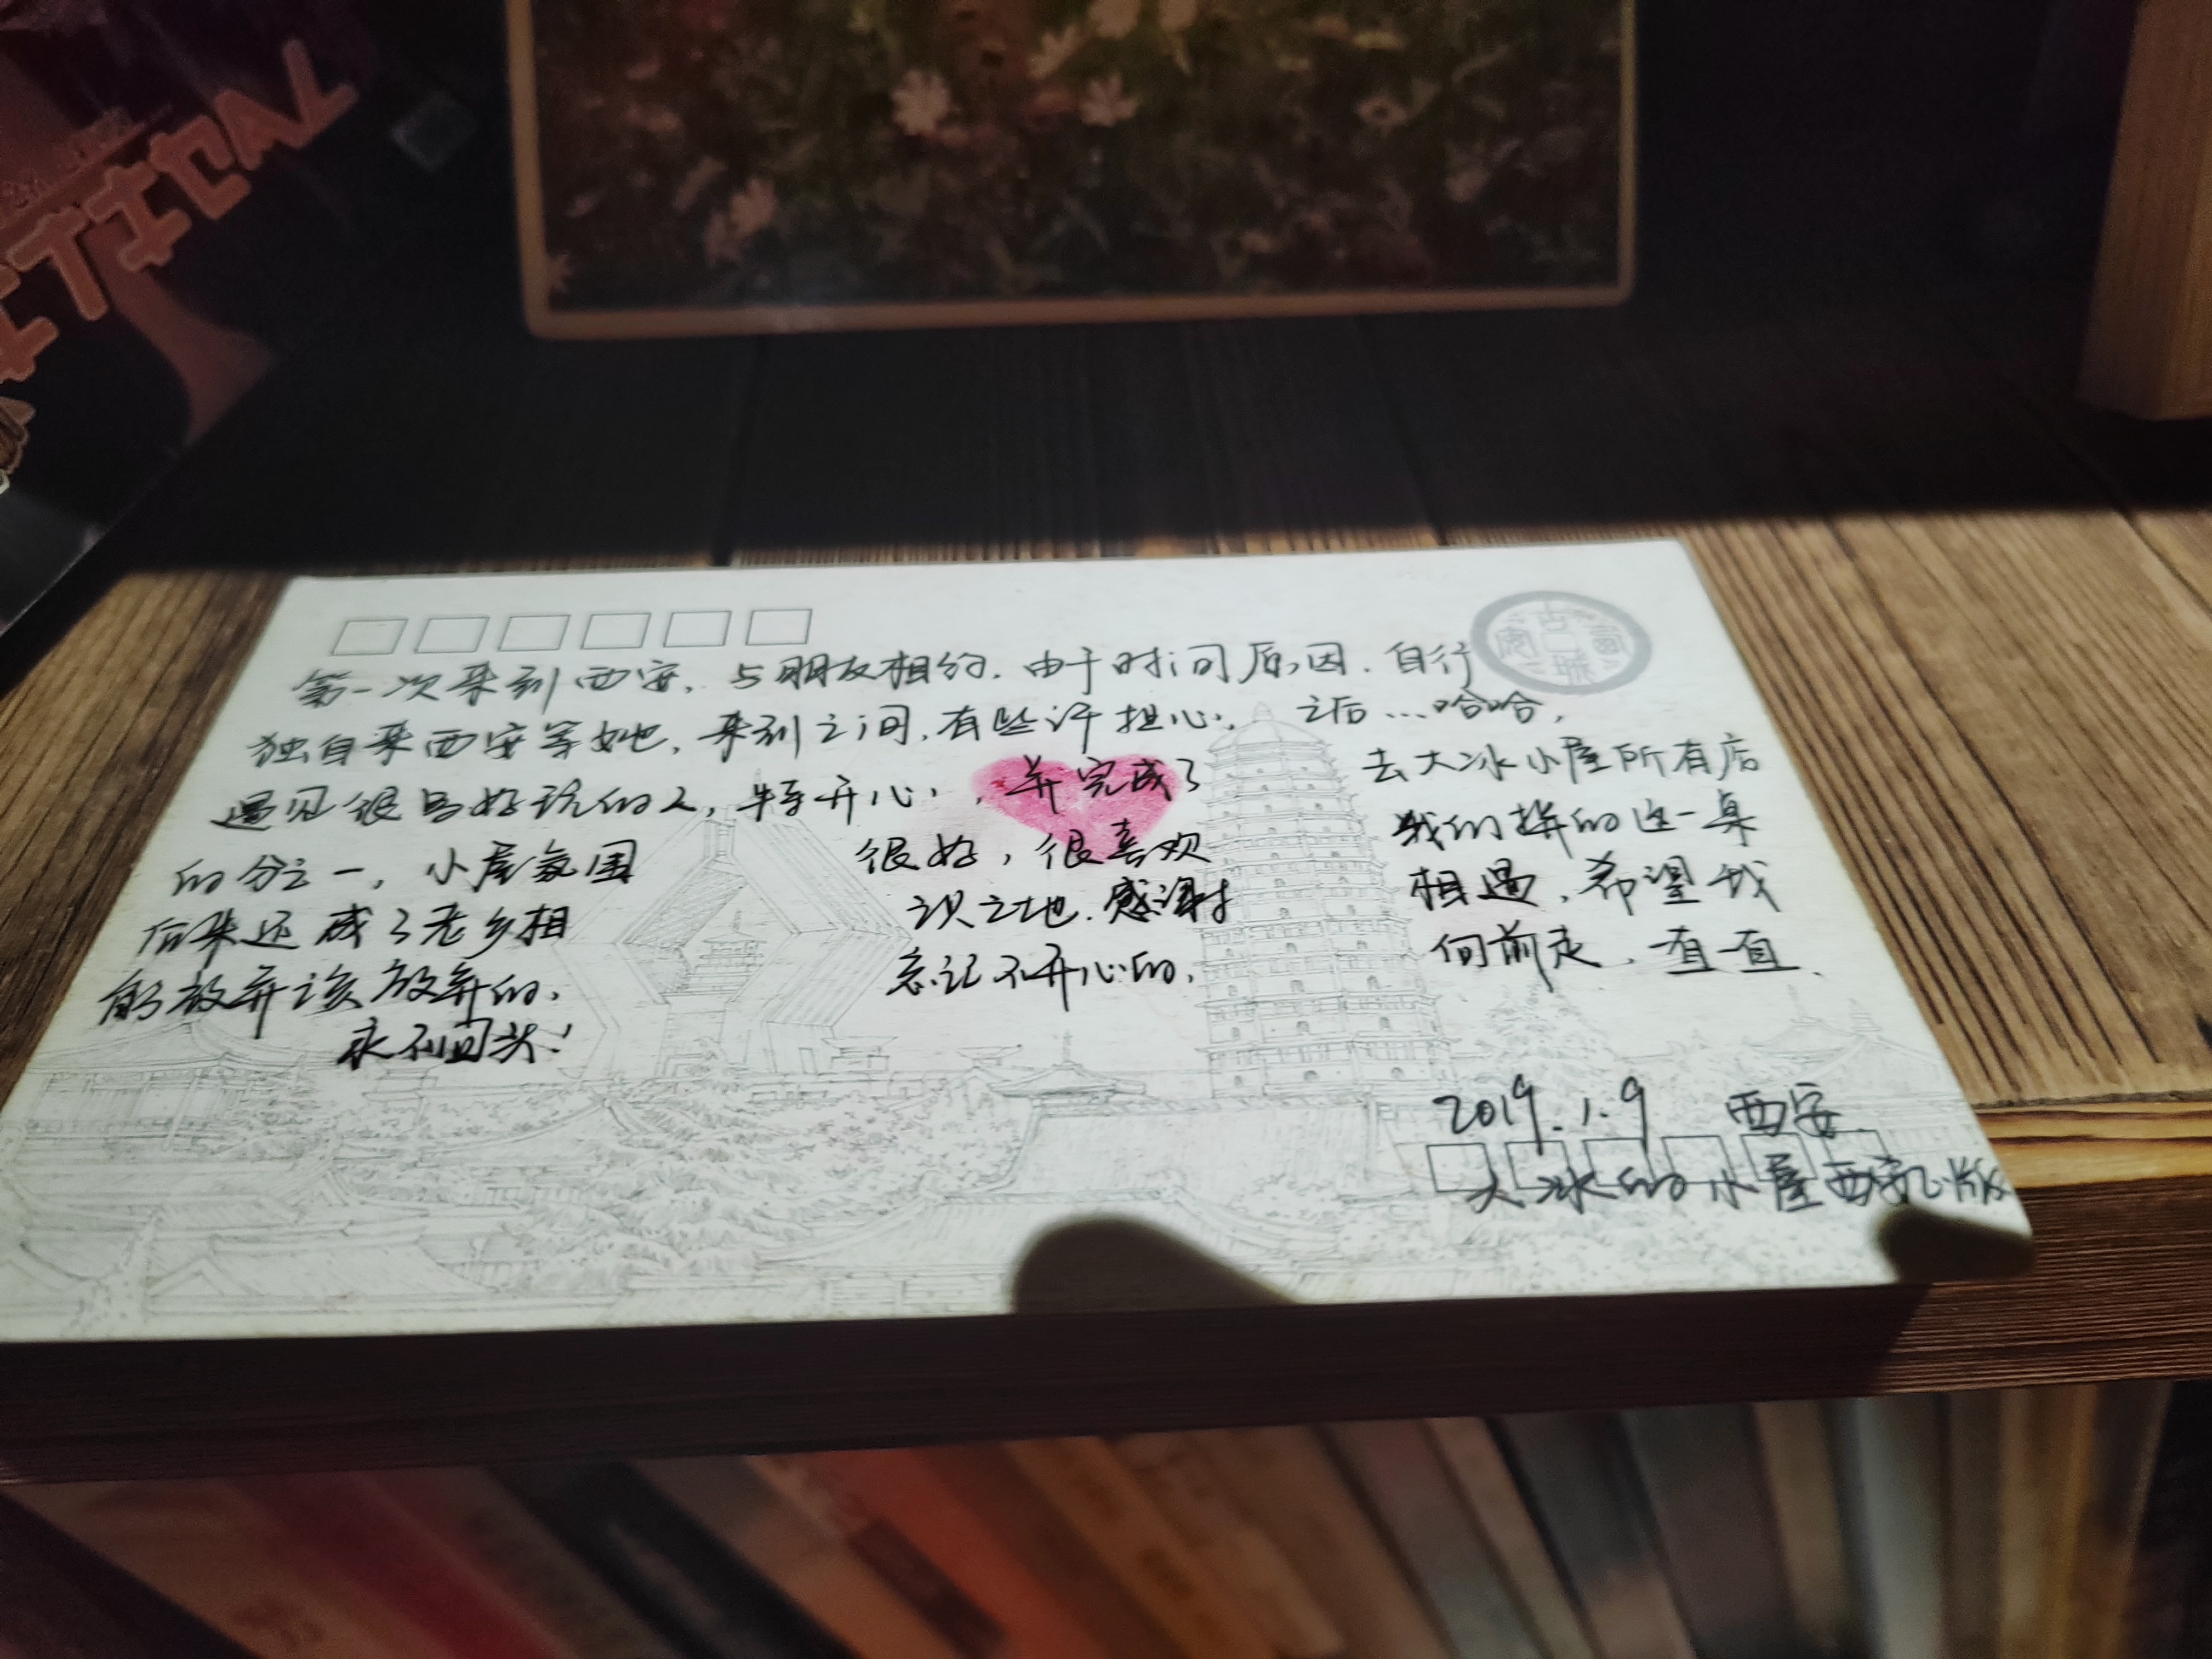 TICAL
古城
第一次来到西安，与朋友相约，由于时间原因，自行
独自来西安等她，来到之间，有些许担心，之后…哈哈，
遇见很多好玩的人，特开心，并完成了去大冰小屋所有店
的分之一，小屋氛围很好，很喜欢我们拼的这一桌
后来还成了老乡相识之地，感谢相遇，希望我
能放弃该放弃的，忘记不开心的，向前走，一直一直、
永不回头！
2019.1.9 西安
大冰的小屋西安